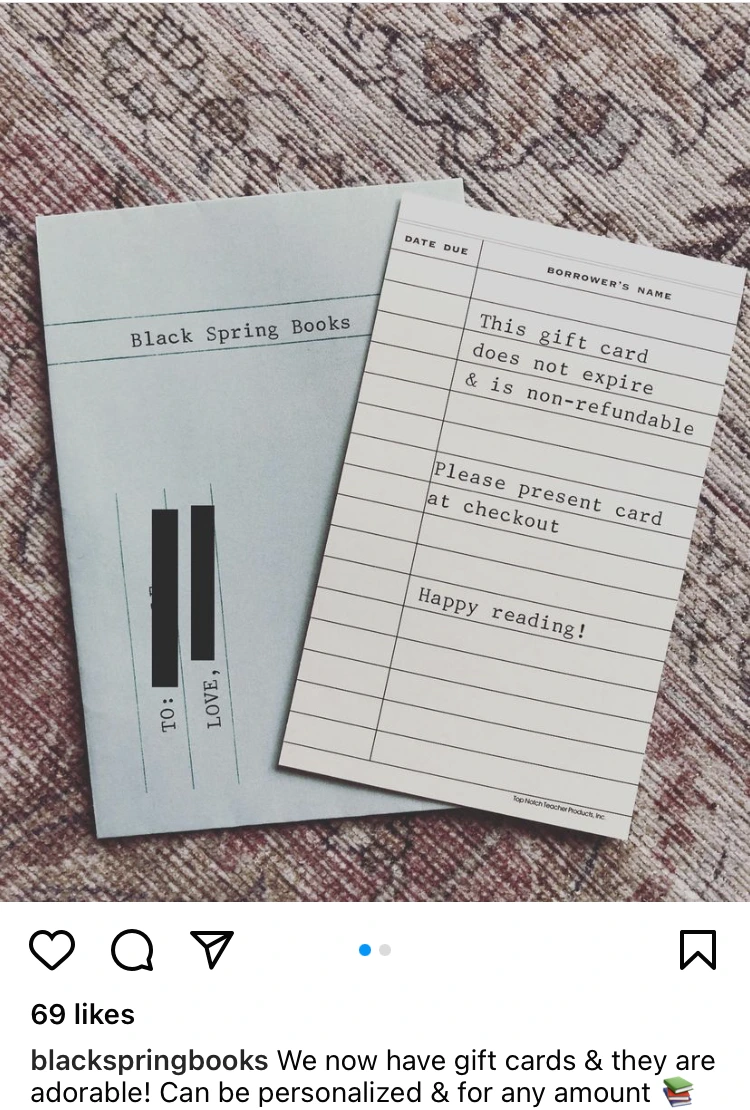 Black Spring Books
TO:
LOVE,
DATE DUE
BORROWER'S NAME
This gift card
does not expire
& is non-refundable
Please present card
at checkout
Happy reading!
Top Notch Teacher Products, Inc.
69 likes
blackspringbooks We now have gift cards & they are
adorable! Can be personalized & for any amount 📚